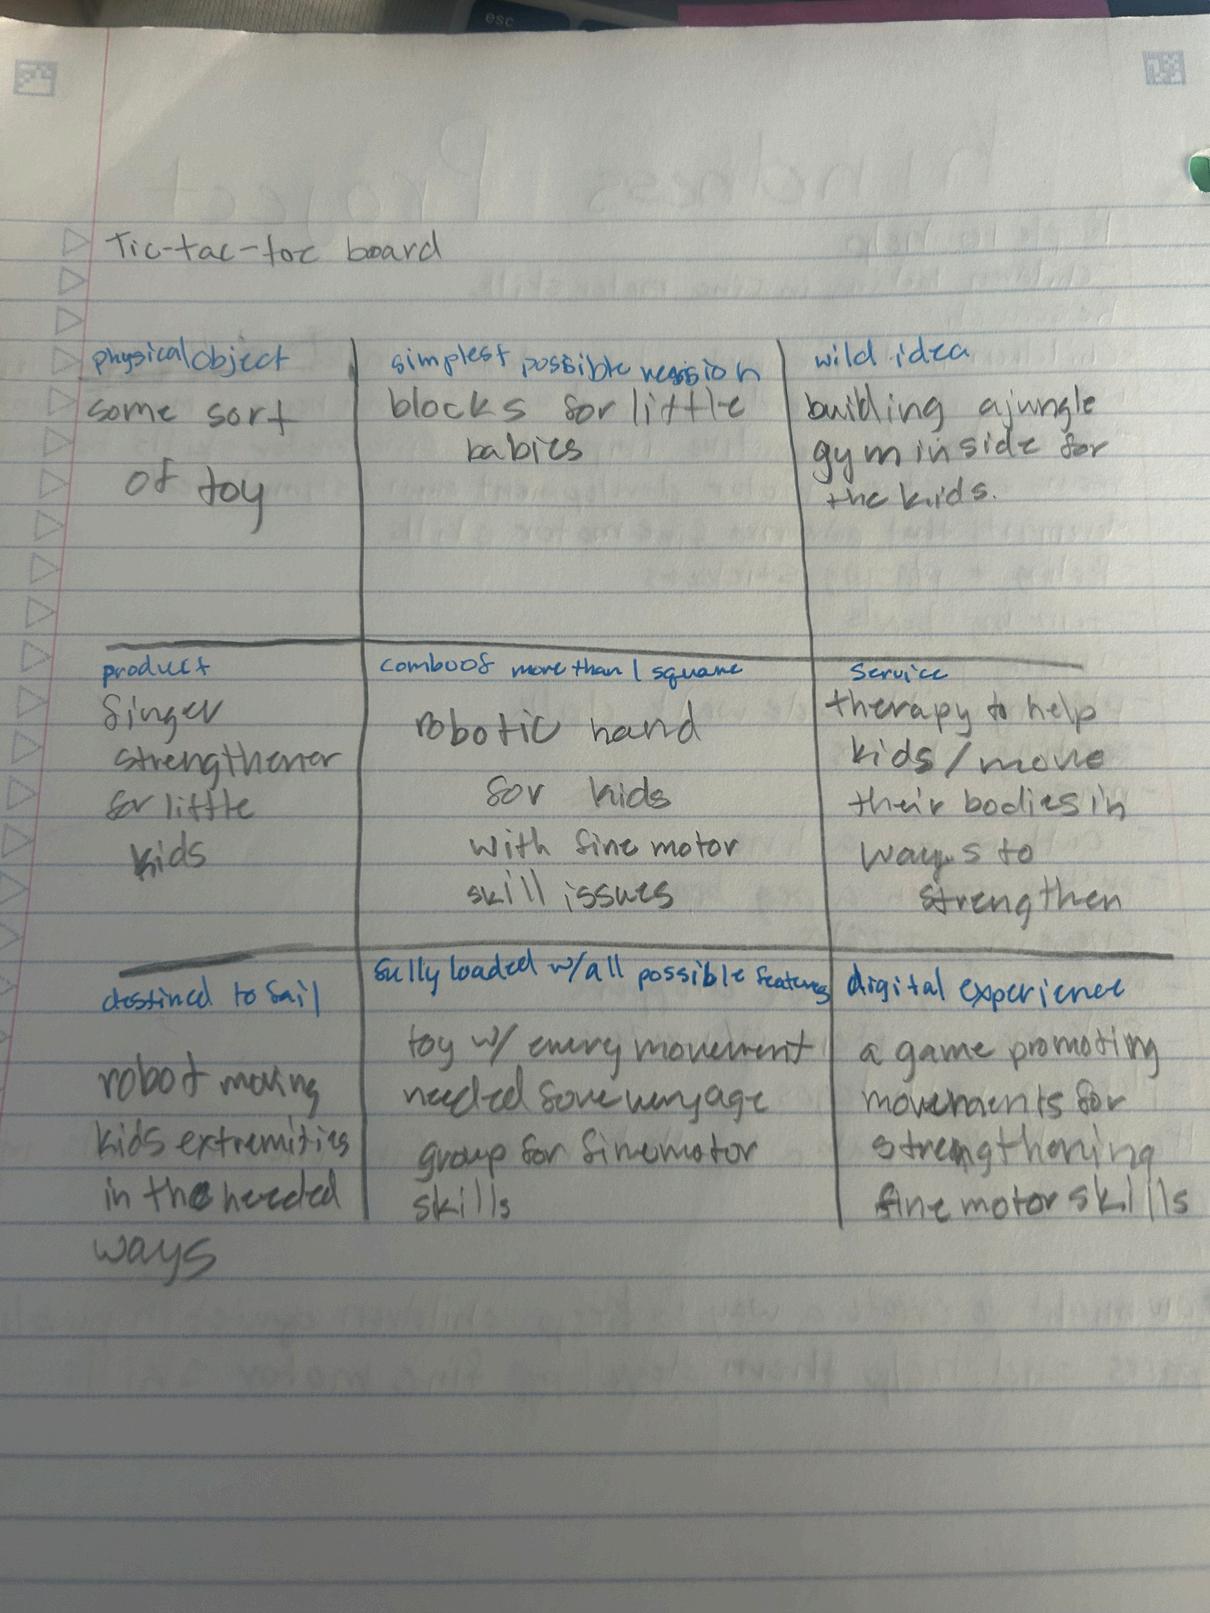 esc
Tic-tac-toe board
physical object
some sort
of toy
simplest possible version
blocks for little
babies
wild idea
building a jungle
gym inside for
the kids.
product
finger
strengthener
for little
kids
combo of more than 1 square
robotic hand
for kids
with fine motor
skill issues
service
therapy to help
kids / move
their bodies in
ways to
strengthen
destined to fail
robot moving
kids extremities
in the needed
ways
fully loaded w/ all possible features
toy w/ every movement
needed for every age
group for fine motor
skills
digital experience
a game promoting
movements for
strengthening
fine motor skills